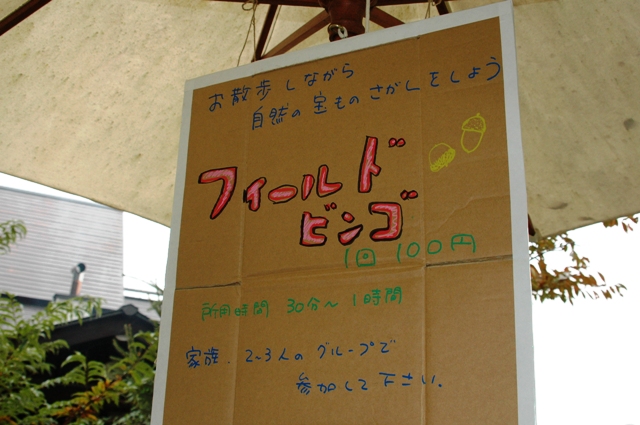 お散歩しながら
自然の宝ものさがしをしよう
フィールド
ビンゴ
1回 100円
所用時間 30分～1時間
家族、2～3人のグループで
参加して下さい。